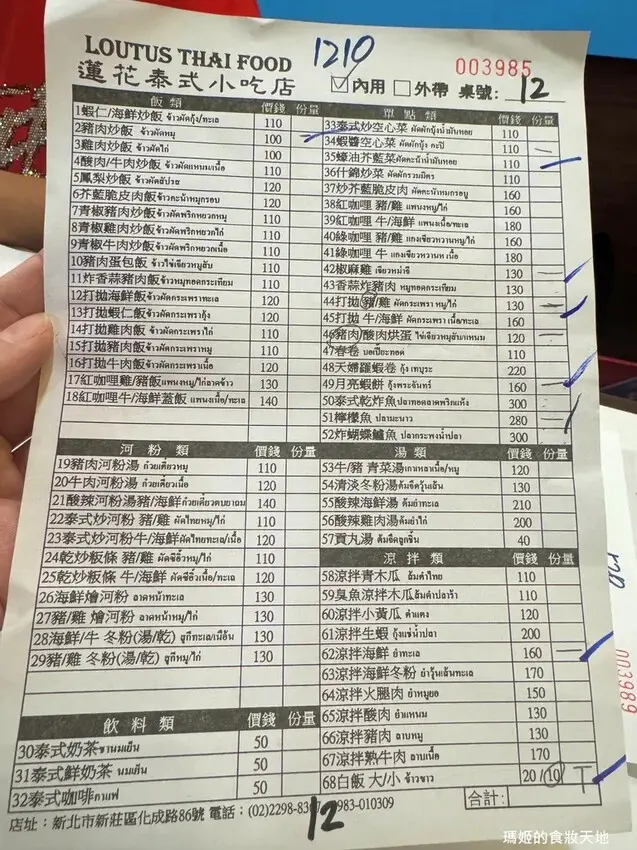 LOUTUS THAI FOOD
1210
003985
蓮花泰式小吃店
內用 外帶 桌號: 12
飯類 價錢 份量
1蝦仁/海鮮炒飯 ข้าวผัดกุ้ง/ทะเล 110
2豬肉炒飯 ข้าวผัดหมู 100
3雞肉炒飯 ข้าวผัดไก่ 100
4酸肉/牛肉炒飯 ข้าวผัดแหนม/เนื้อ 110
5鳳梨炒飯 ข้าวผัดสับปรส 120
6芥藍脆皮肉飯 ข้าวคะน้าหมูกรอบ 120
7青椒豬肉炒飯 ข้าวผัดพริกหยวกหมู 110
8青椒雞肉炒飯 ข้าวผัดพริกหยวกไก่ 110
9青椒牛肉炒飯 ข้าวผัดพริกหยวกเนื้อ 110
10豬肉蛋包飯 ข้าวไข่เจียวหมูสับ 110
11炸香蒜豬肉飯 ข้าวหมูทอดกระเทียม 110
12打拋海鮮飯 ข้าวผัดกระเพราทะเล 120
13打拋蝦仁飯 ข้าวผัดกระเพรากุ้ง 120
14打拋雞肉飯 ข้าวผัดกระเพราไก่ 110
15打拋豬肉飯 ข้าวผัดกระเพราหมู 110
16打拋牛肉飯 ข้าวผัดกระเพราเนื้อ 120
17紅咖哩雞/豬飯 แพนงหมู/ไก่ราดข้าว 130
18紅咖哩牛/海鮮蓋飯 แพนงเนื้อ/ทะเล 140
河粉類 價錢 份量
19豬肉河粉湯 ก๋วยเตี๋ยวหมู 110
20牛肉河粉湯 ก๋วยเตี๋ยวเนื้อ 120
21酸辣河粉湯豬/海鮮 ก๋วยเตี๋ยวต้มยำ 140
22泰式炒河粉 豬/雞 ผัดไทยหมู/ไก่ 110
23泰式炒河粉 牛/海鮮 ผัดไทยทะเล/เนื้อ 120
24乾炒粄條 豬/雞 ผัดซีอิ๊วหมู/ไก่ 110
25乾炒粄條 牛/海鮮 ผัดซีอิ๊วเนื้อ/ทะเล 120
26海鮮燴河粉 ลาดหน้าทะเล 130
27豬/雞 燴河粉 ลาดหน้าหมู/ไก่ 130
28海鮮/牛 冬粉(湯/乾) สุกี้ทะเล/เนื้อ 130
29豬/雞 冬粉(湯/乾) สุกี้หมู/ไก่ 130
飲料類 價錢 份量
30泰式奶茶 ชานมเย็น 50
31泰式鮮奶茶 นมเย็น 50
32泰式咖啡 กาแฟ 50
單點類 價錢 份量
33泰式炒空心菜 ผัดผักบุ้งน้ำมันหอย 110
34蝦醬空心菜 ผัดผักบุ้ง กะปิ 110
35蠔油芥藍菜 ผัดคะน้าน้ำมันหอย 110
36什錦炒菜 ผัดผักรวมมิตร 110
37炒芥藍脆皮肉 ผัดคะน้าหมูกรอบ 160
38紅咖哩 豬/雞 แพนงหมู/ไก่ 160
39紅咖哩 牛/海鮮 แพนงเนื้อ/ทะเล 180
40綠咖哩 豬/雞 แกงเขียวหวานหมู/ไก่ 160
41綠咖哩 牛 แกงเขียวหวานเนื้อ 180
42椒麻雞 เจียวหม่าจี 130
43香蒜炸豬肉 หมูทอดกระเทียม 130
44打拋 豬/雞 ผัดกระเพรา หมู/ไก่ 130
45打拋 牛/海鮮 ผัดกระเพรา เนื้อ/ทะเล 160
46豬肉/酸肉烘蛋 ไข่เจียวหมูสับ/แหนม 120
47春卷 บอเปี๊ยะทอด 110
48天婦羅蝦卷 กุ้ง เทบุระ 220
49月亮蝦餅 กุ้งพระจันทร์ 160
50泰式乾炸魚 ปลาทอดลาดพริกแห้ง 300
51檸檬魚 ปลามะนาว 280
52炸蝴蝶鱸魚 ปลากระพงน้ำปลา 300
湯類 價錢 份量
53牛/豬 青菜湯 เกาเหลาเนื้อ/หมู 120
54清淡冬粉湯 ต้มจืดวุ้นเส้น 130
55酸辣海鮮湯 ต้มยำทะเล 210
56酸辣雞肉湯 ต้มยำไก่ 200
57貢丸湯 ต้มจืดลูกชิ้น 40
涼拌類 價錢 份量
58涼拌青木瓜 ส้มตำไทย 110
59臭魚涼拌木瓜 ส้มตำปลาร้า 110
60涼拌小黃瓜 ตำแตง 120
61涼拌生蝦 กุ้งแช่น้ำปลา 200
62涼拌海鮮 ยำทะเล 160
63涼拌海鮮冬粉 ยำวุ้นเส้นทะเล 170
64涼拌火腿肉 ยำหมูยอ 150
65涼拌酸肉 ยำแหนม 130
66涼拌豬肉 ลาบหมู 130
67涼拌熟牛肉 ลาบเนื้อ 170
68白飯 大/小 ข้าวขาว 20/10 T
合計:
店址:新北市新莊區化成路86號 電話:(02)2298-83 983-010309
12
003989
瑪姬的食妝天地